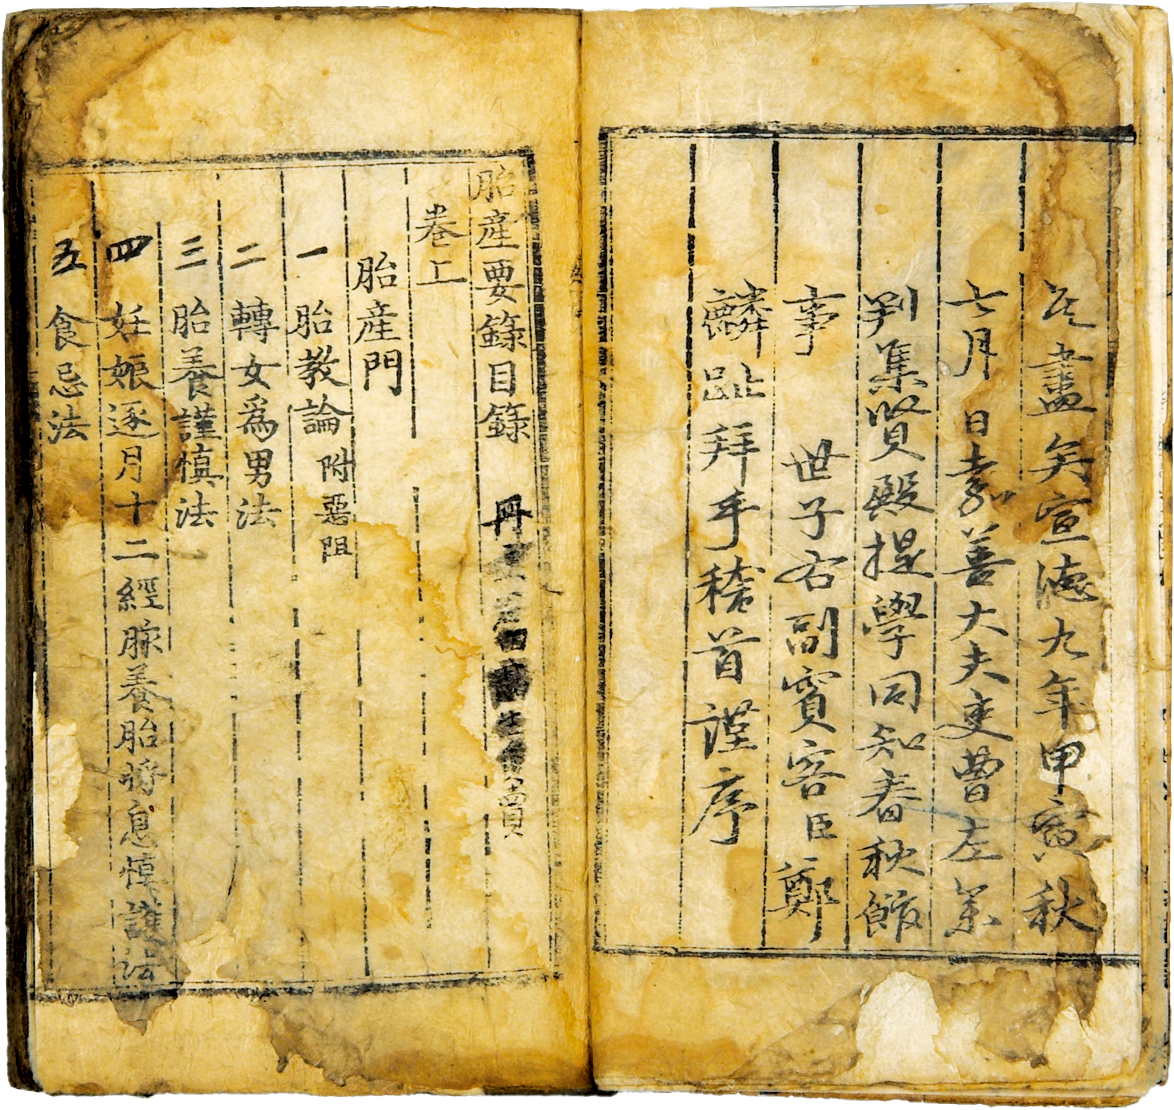 无盡矣宣德九年甲寅秋
七月 日嘉善大夫吏曹左叅
判集賢殿提學同知春秋館
事 世子右副賓客臣鄭
麟趾拜手稽首謹序
胎産要錄目錄
卷上
胎産門
一 胎教論 附惡阻
二 轉女爲男法
三 胎養謹慎法
四 妊娠逐月十二經脉養胎將息慎護法
五 食忌法